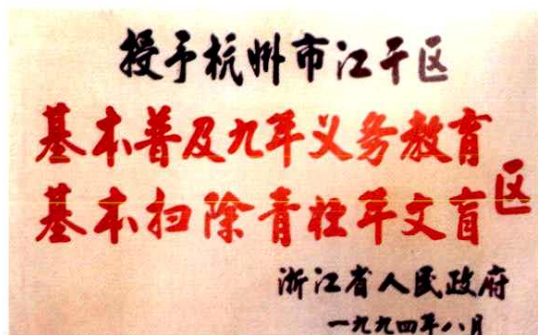 授予杭州市江干区
基本普及九年义务教育
基本扫除青壮年文盲
区
浙江省人民政府
一九九四年八月